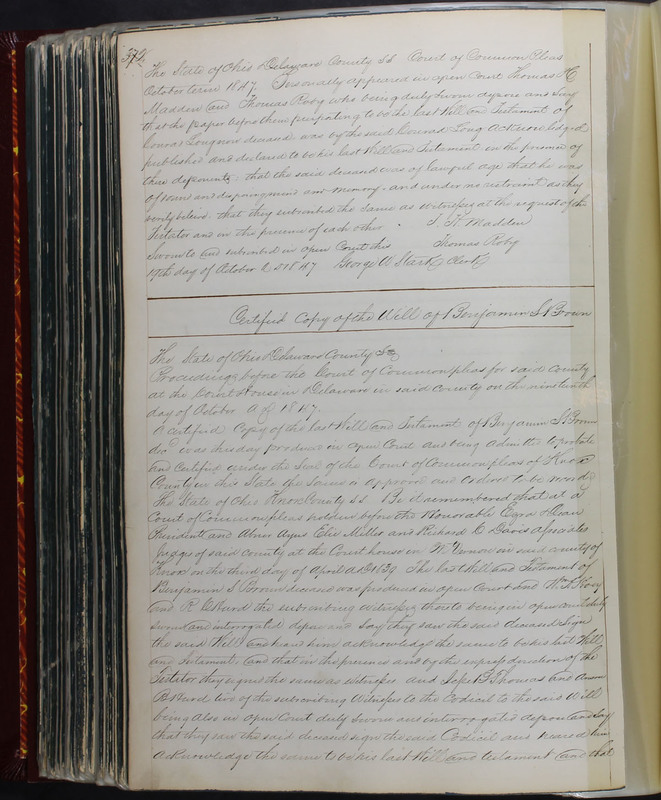 372
The State of Ohio Delaware County SS Court of Common Pleas
October term 1847. Personally appeared in open Court Thomas
Madden and Thomas Roby who being duly sworn depose and say
that the paper before them purporting to be the last Will and Testament of
Conrad Long now deceased was by the said Conrad Long acknowledged
published and declared to be his last Will and Testament in the presence of
these deponents, that the said deceased was of lawful age that he was
of sound and disposing mind and memory, and under no restraint as they
verily believe. that they subscribed the same as witnesses at the request of the
Testator and in the presence of each other. Madden
Sworn to and subscribed in open Court this Thomas Roby
19th day of October AD 1847 George W Stark Clerk
Certified Copy of the Will of Benjamin S Brown
The State of Ohio Delaware County SS
Proceedings before the Court of Common pleas for said County
at the Court House in Delaware in said county on the nineteenth
day of October AD 1847.
A certified Copy of the last Will and Testament of Benjamin S Brown
decd was this day produced in open Court and being admitted to probate
and Certified under the Seal of the Court of Common pleas of Knox
County in this State the same is approved and ordered to be record
The State of Ohio Knox County SS Be it remembered that at a
Court of Common pleas holden before the Honorable Ezra Dean
President and Abner Ayres Elie Miller and Richard Davis Associates
Judges of said county at the Court house in Mt Vernon in said county of
Knox on the third day of April AD 1839 The last Will and Testament of
Benjamin S Brown deceased was produced in open Court and Wm
and R the subscribing witnesses thereto being in open court duly
sworn and interrogated depose and say they saw the said deceased sign
the said Will and heard him acknowledge the same to be his last Will
and Testament, and that in the presence and by the express direction of the
Testator they signed the same as witnesses and Thomas and
two of the subscribing Witnesses to the Codicil to the said Will
being also in open Court duly sworn and interrogated depose and say
that they saw the said deceased sign the said Codicil and heard him
acknowledge the same to be his last Will and testament and that